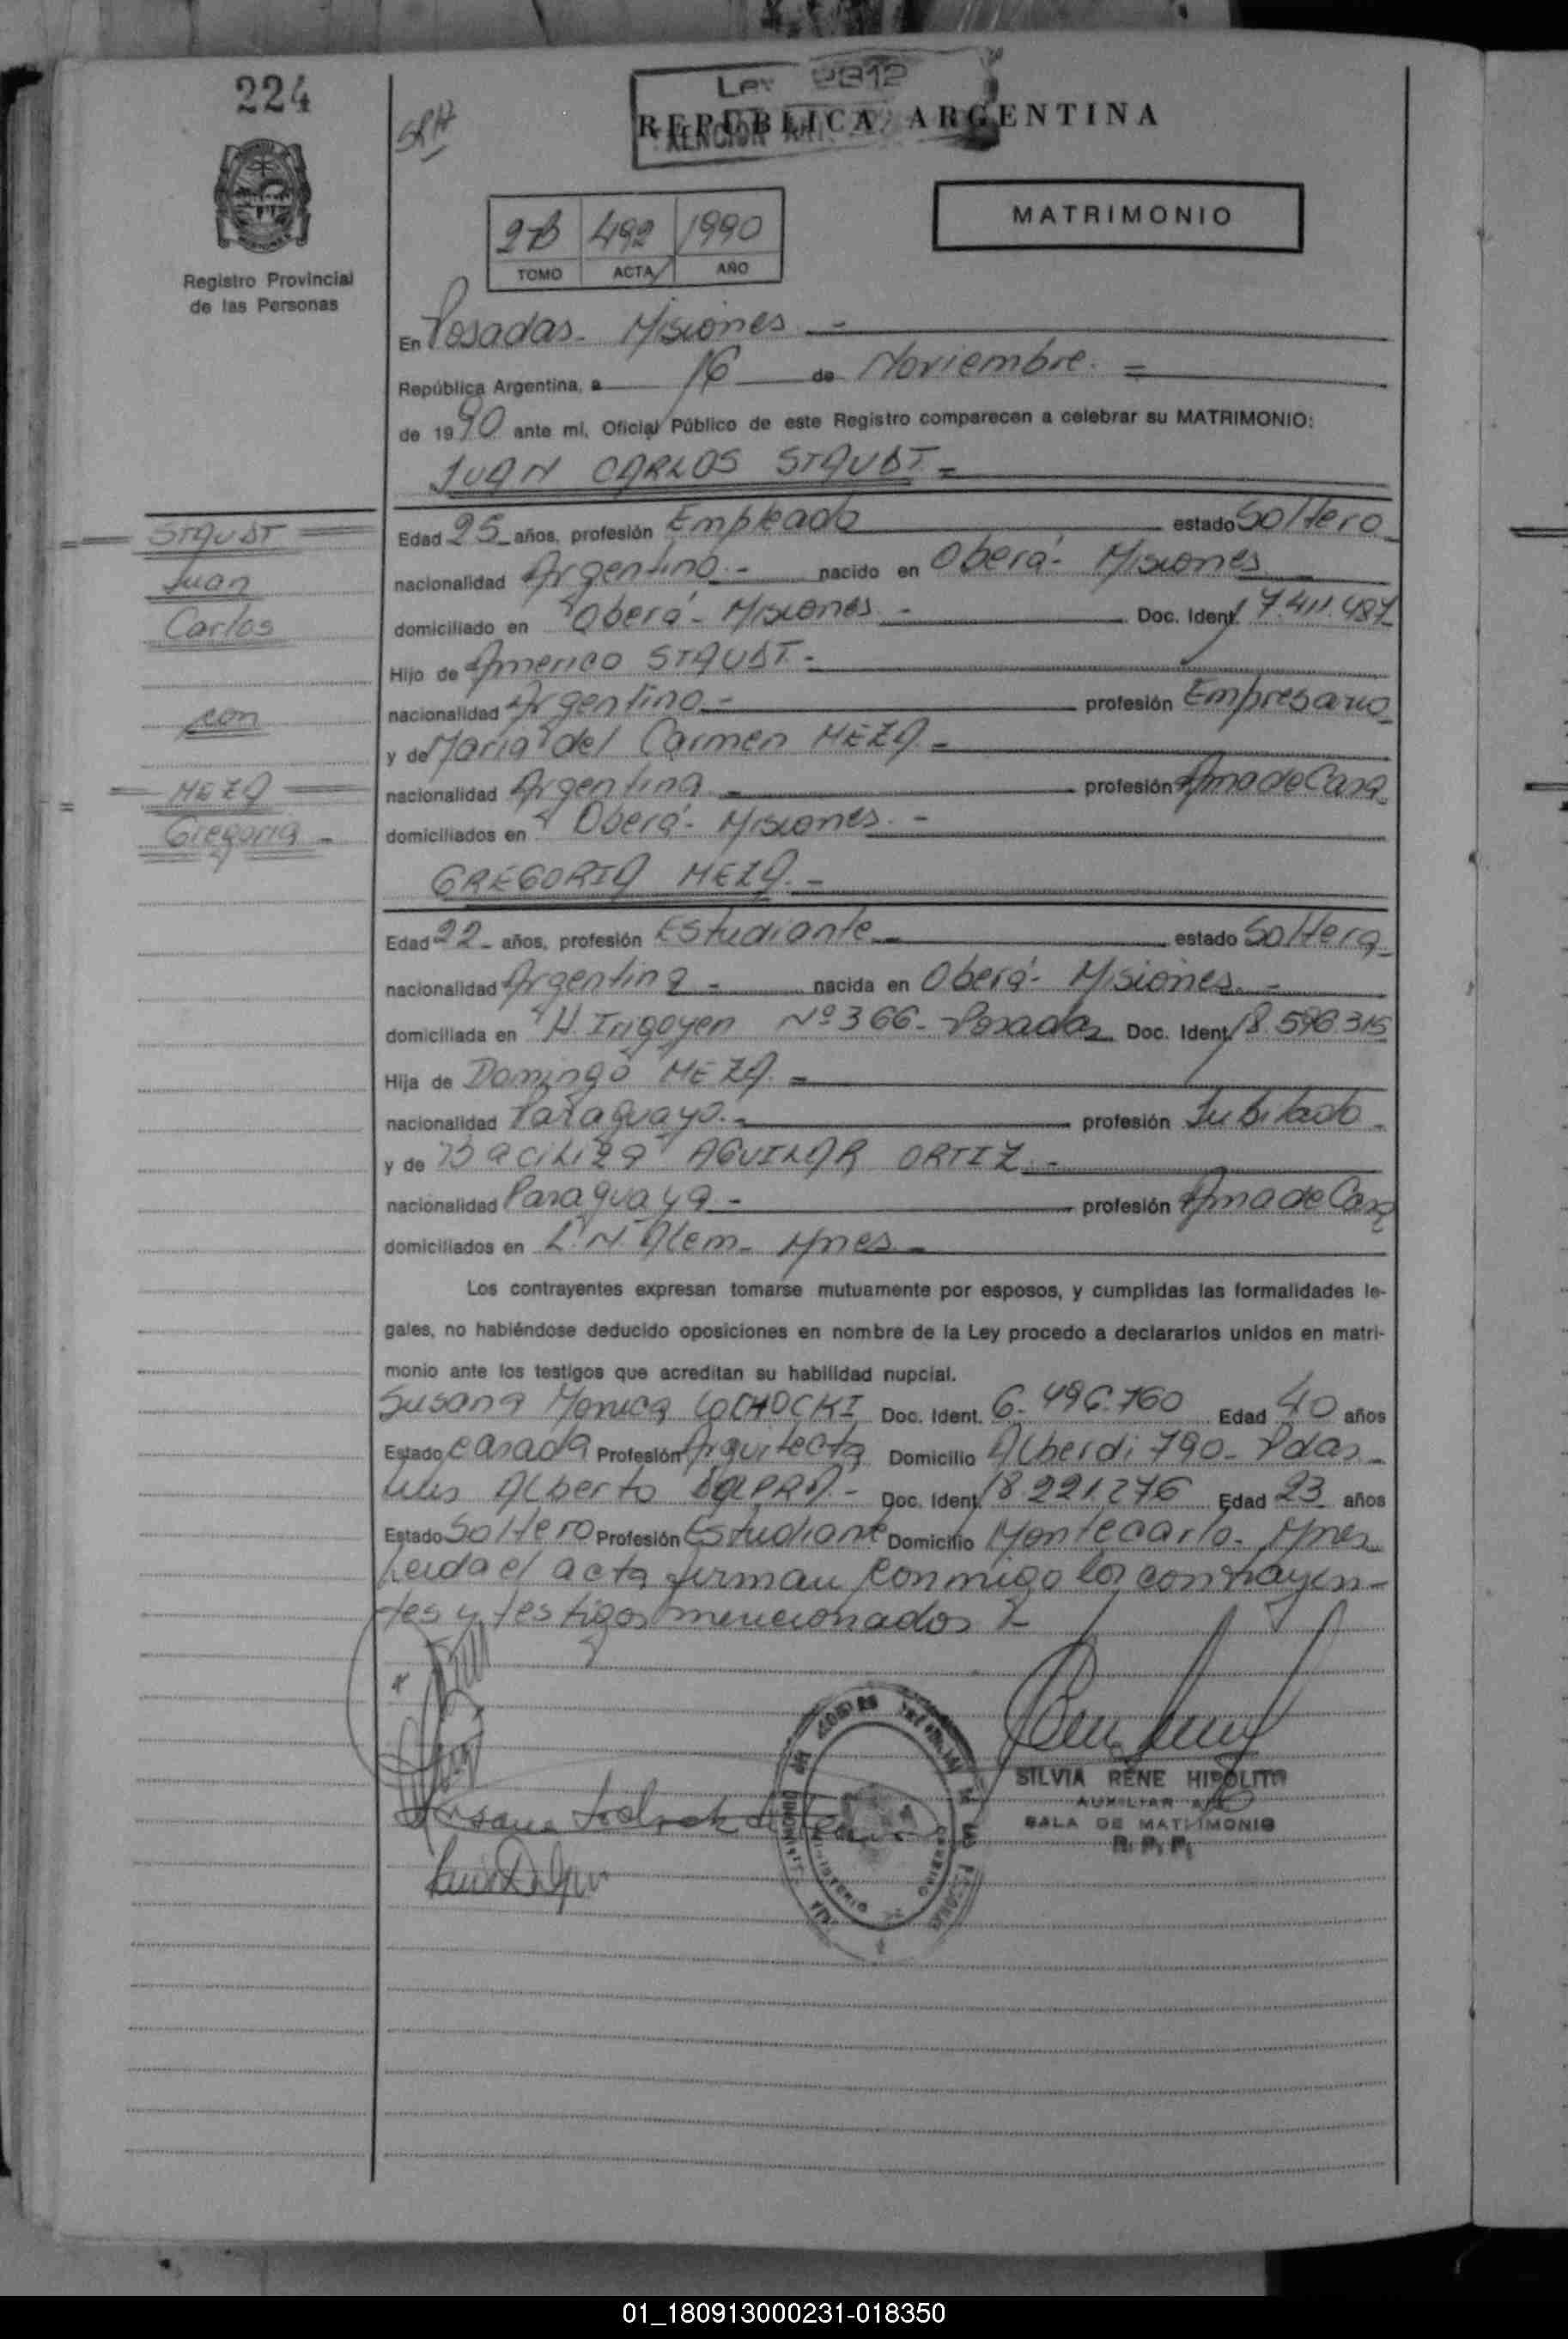 224
SRH
Ley 2812
REPUBLICA ARGENTINA
Registro Provincial
de las Personas
2B 492 1990
TOMO ACTA AÑO
MATRIMONIO
En Posadas - Misiones. -
República Argentina, a 16 de Noviembre. =
de 1990 ante mi, Oficial Público de este Registro comparecen a celebrar su MATRIMONIO:
JUAN CARLOS STAUDT. =
STAUDT
Juan
Carlos
con
MEZA
Gregoria -
Edad 25 - años, profesión Empleado estado Soltero -
nacionalidad Argentino. - nacido en Oberá - Misiones
domiciliado en Oberá - Misiones - Doc. Ident. 17.411.487
Hijo de Americo STAUDT. -
nacionalidad Argentino. - profesión Empresario -
y de Maria del Carmen MEZA -
nacionalidad Argentina - profesión Ama de Casa -
domiciliados en Oberá - Misiones. -
GREGORIA MEZA. -
Edad 22 - años, profesión Estudiante - estado Soltera -
nacionalidad Argentina - nacida en Oberá - Misiones. -
domiciliada en H. Irigoyen Nº 366 - Posadas Doc. Ident. 18.596.315
Hija de Domingo MEZA. -
nacionalidad Paraguayo. - profesión Jubilado -
y de AGUILAR ORTIZ. -
nacionalidad Paraguaya - profesión Ama de Casa
domiciliados en L. N. Alem - Mnes -
Los contrayentes expresan tomarse mutuamente por esposos, y cumplidas las formalidades le-
gales, no habiéndose deducido oposiciones en nombre de la Ley procedo a declararlos unidos en matri-
monio ante los testigos que acreditan su habilidad nupcial.
Susana Monica LOCHOCKI Doc. Ident. 6.496.760 Edad 40 años
Estado casada Profesión Arquitecta Domicilio Alberdi 790 - Pdas -
Luis Alberto DALPRA - Doc. Ident. 18.221.276 Edad 23 años
Estado Soltero Profesión Estudiante Domicilio Montecarlo - Mnes
Leida el acta firman conmigo los contrayen-
tes y testigos mencionados
SILVIA RENE HIPOLITO
AUXILIAR
SALA DE MATRIMONIO
R. P. P.
01_180913000231-018350